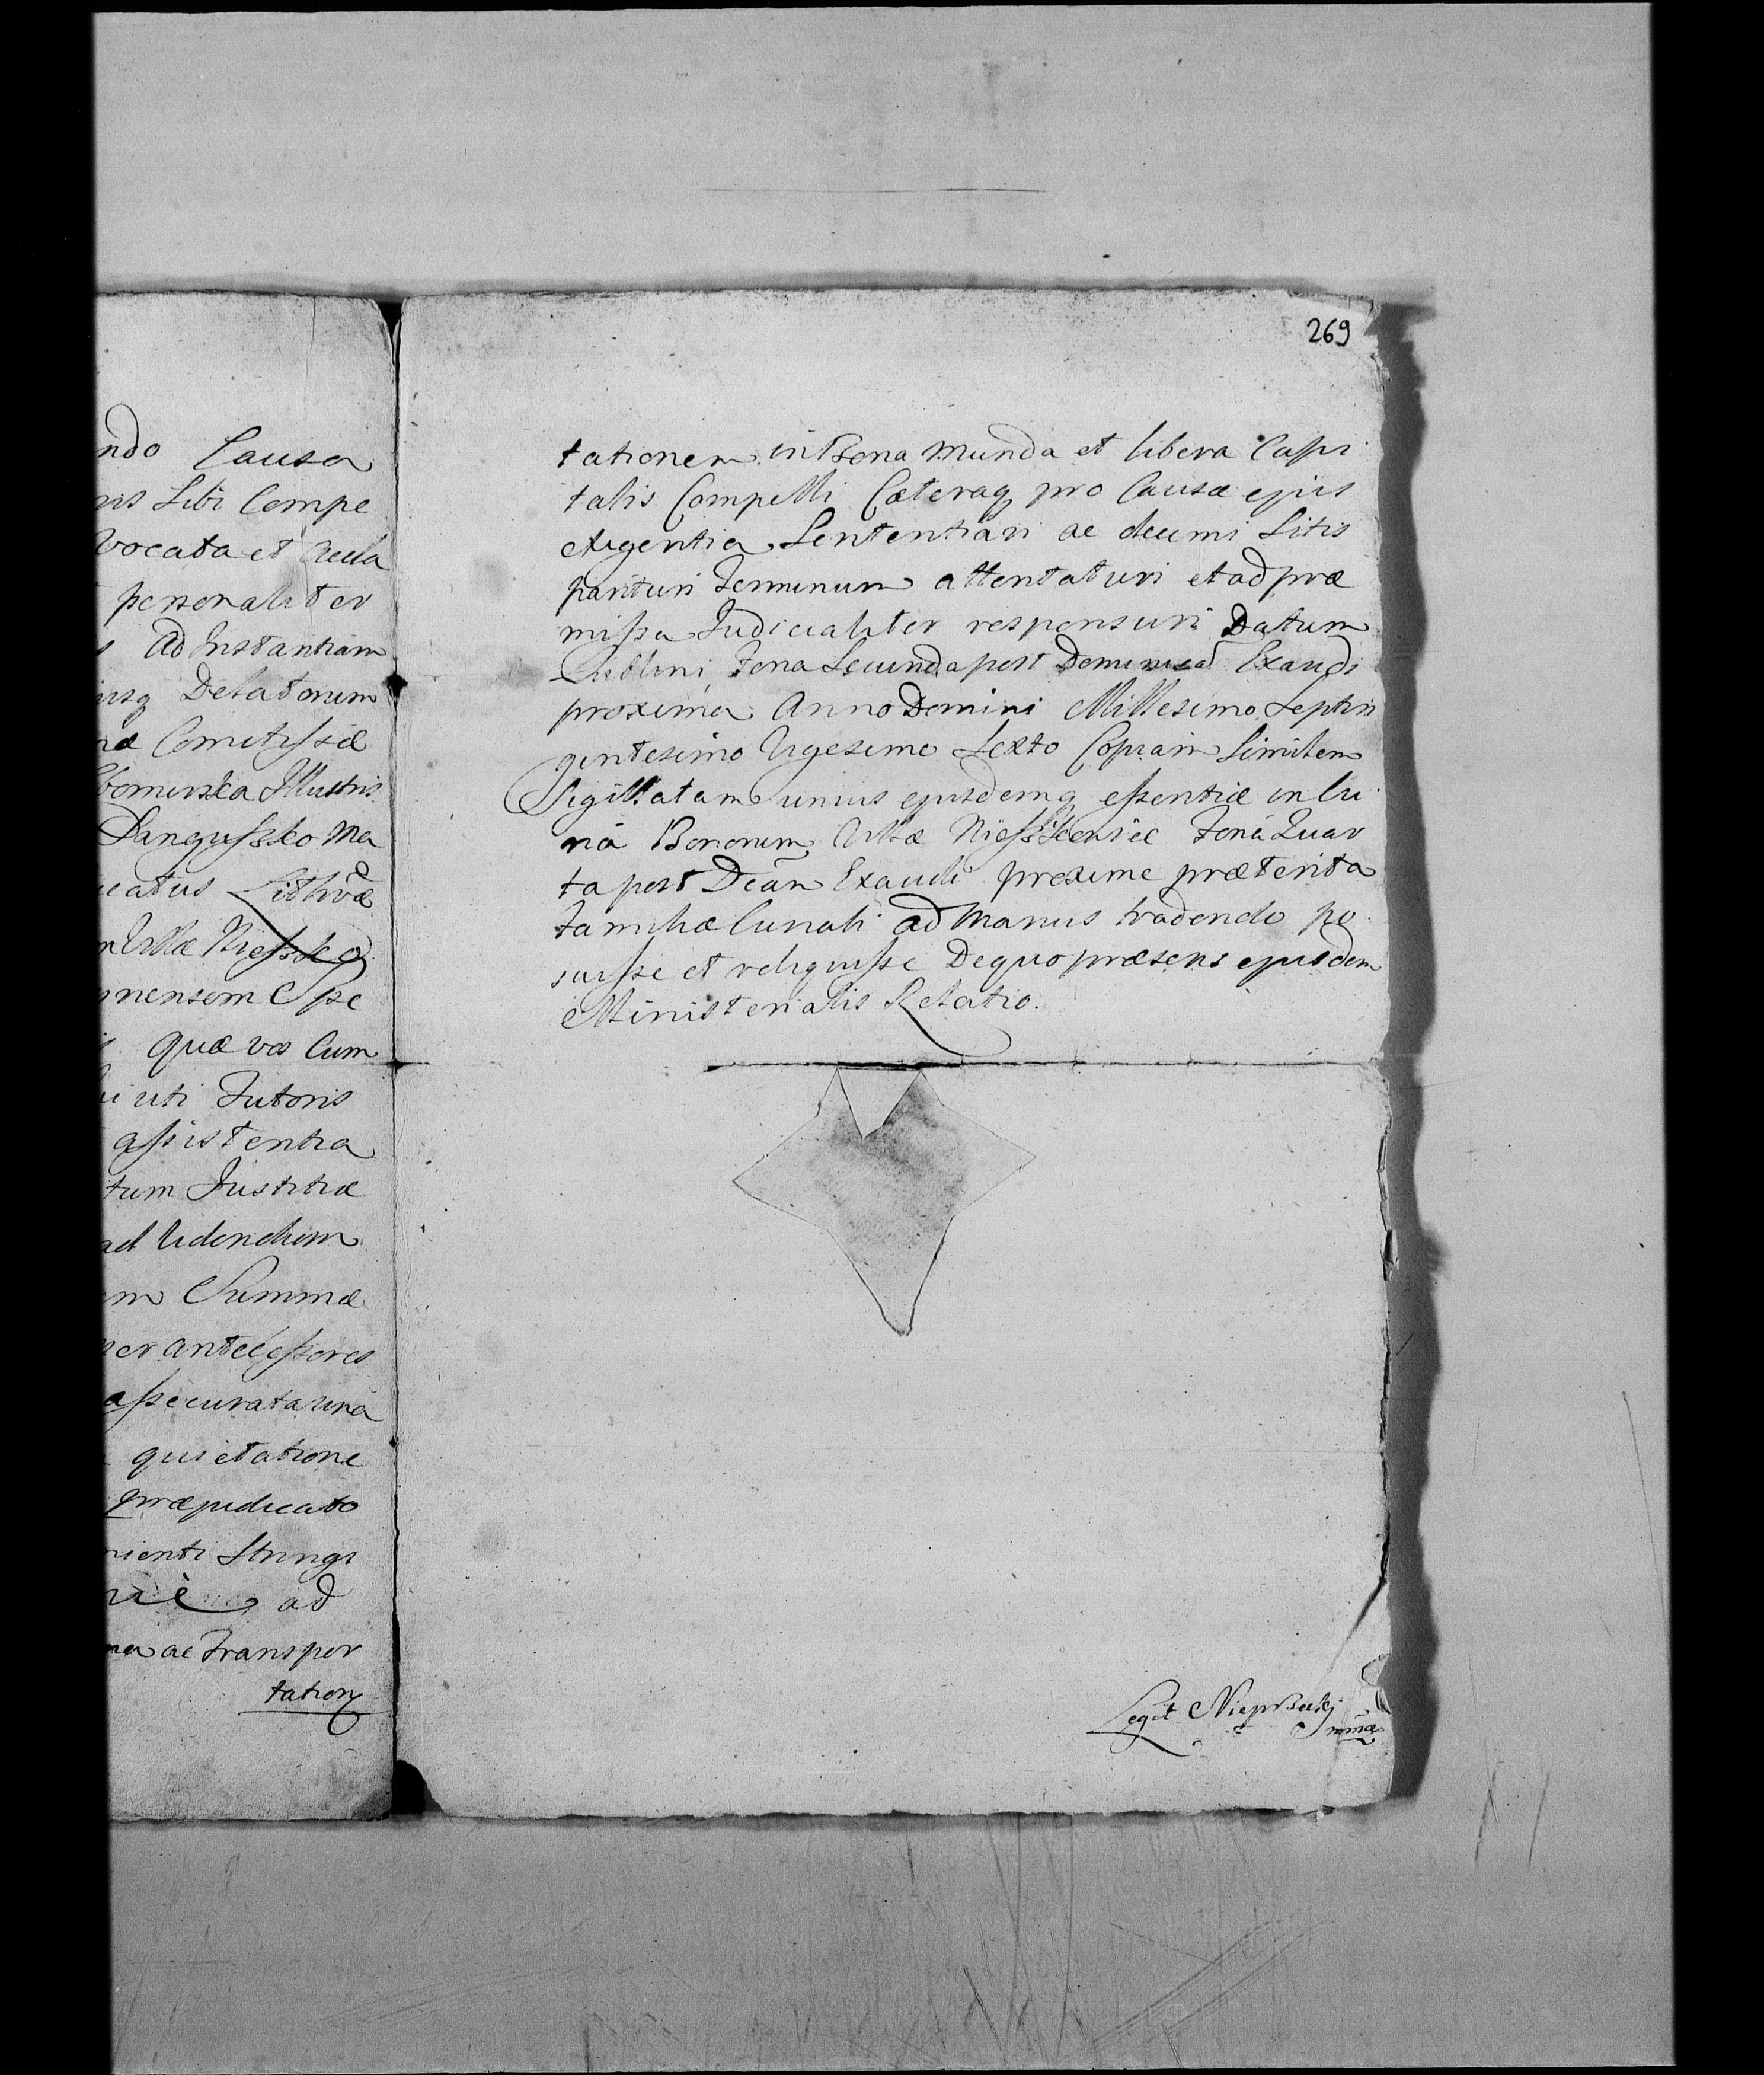 ndo Causa
ris Sibi Compe
vocata et Acta
personaliter
Ad Instantiam
usq Delatorum
Comitissæ
bomirska Illustris
Sangussko Ma
catus Lithvæ
Villæ Niessko
nensem Spe
quæ vos Cum
uti Tutoris
assistentia
tum Justitiæ
ad Videndum
m Summæ
antecessores
assecurata una
quietatione
præjudicato
nienti Stringi
ad
ac Transpor
tation
269
tationem in Bona Munda et libera Capi
talis Compelli Cæteraq pro Causæ ejus
exigentia Sententiari ac decerni Litis
parituri Terminum attentaturi et ad præ
missa Judicialiter responsuri Datum
Lublini Feria Secunda post Dominicã Exaudi
proxima Anno Domini Millesimo Septin
gentesimo Vigesimo Sexto Copiam Similem
Sigillatam unius ejusdemq essentiæ in Cu
ria Bonorum Villæ Feria Quar
ta post Dcãm Exaudi proxime præterita
familiæ Curiali ad Manus tradendo po
suisse et reliquisse De quo præsens ejusdem
Ministerialis Relatio.
Legit